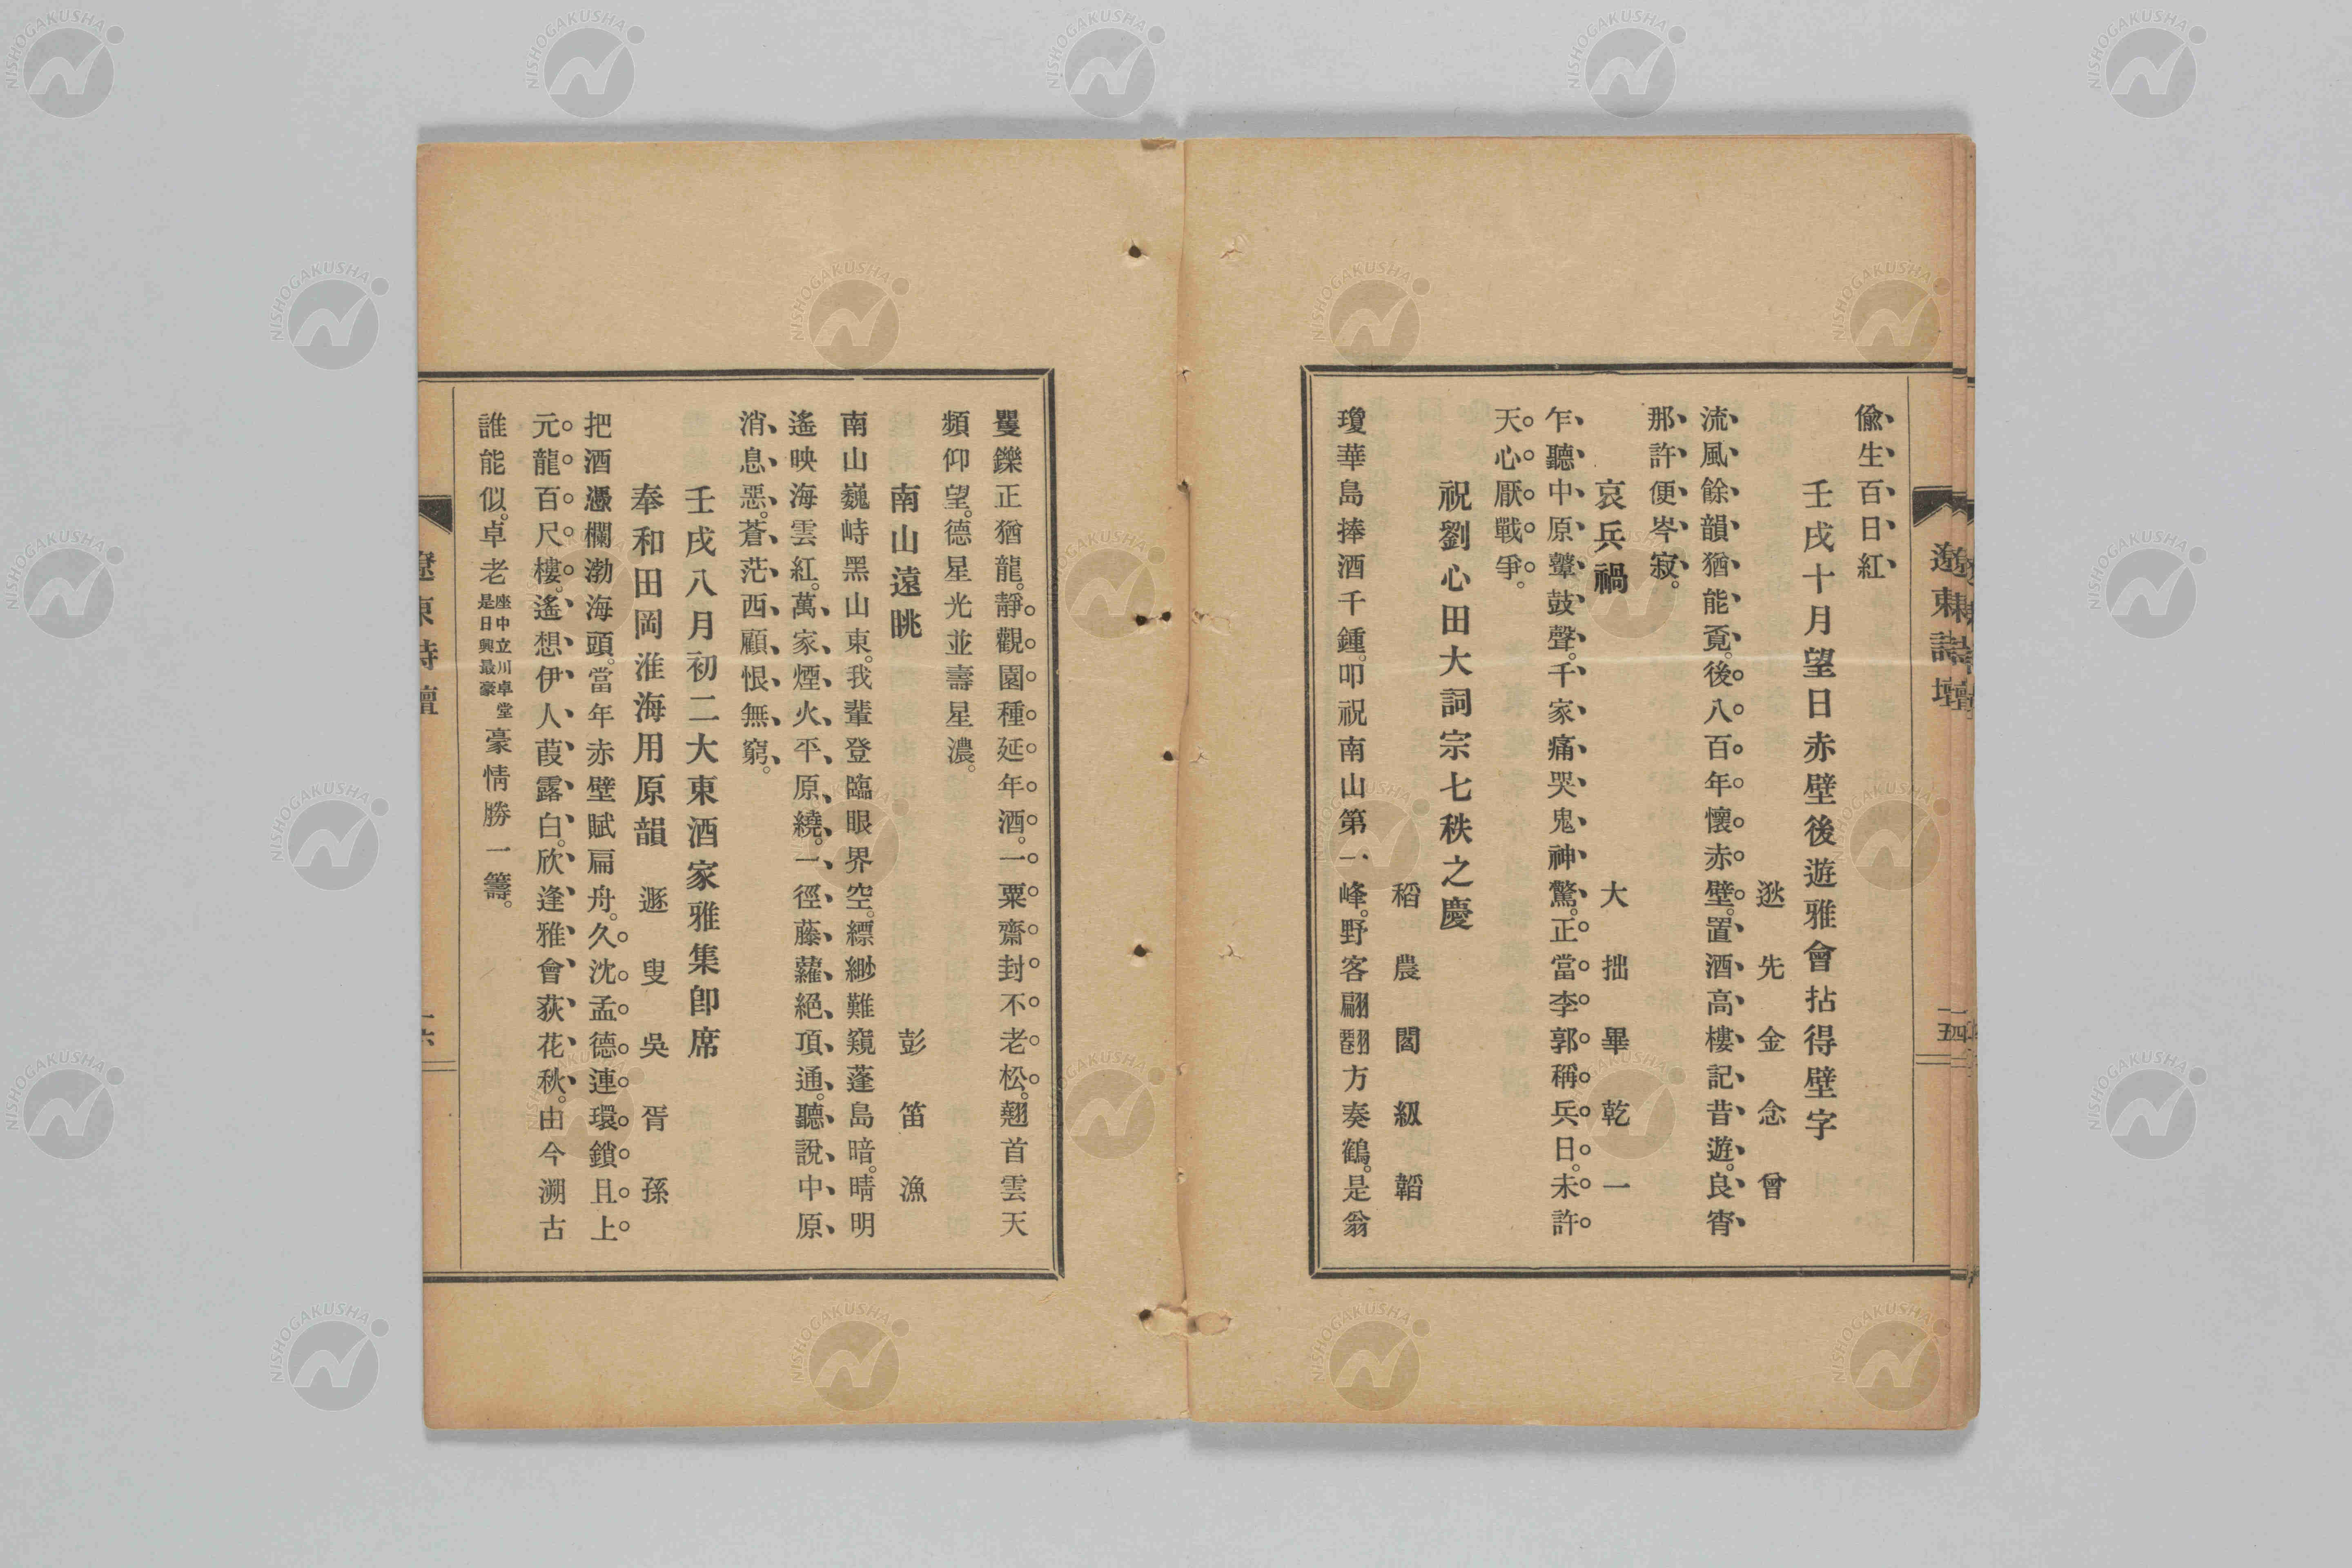 偸生百日紅
壬戌十月望日赤壁後遊雅會拈得壁字
逖先金念曾
流風餘韻猶能覔。後八百年懷赤壁。置酒高樓記昔遊。良宵
那許便岑寂。
哀兵禍
大拙畢乾一
乍聽中原鼙鼓聲。千家痛哭鬼神驚。正當李郭稱兵日。未許
天心厭戰爭。
祝劉心田大詞宗七秩之慶
稻農閻級韜
瓊華島捧酒千鍾。叩祝南山第一峰。野客翩翾方奏鶴。是翁
矍鑠正猶龍。靜觀園種延年酒。一粟齋封不老松。翹首雲天
頻仰望。德星光並壽星濃。
南山遠眺
彭笛漁
南山巍峙黑山東。我輩登臨眼界空。縹緲難窺蓬島暗。晴明
遙映海雲紅。萬家煙火平原繞。一徑藤蘿絕頂通。聽說中原
消息惡。蒼茫西顧恨無窮。
壬戌八月初二大東酒家雅集卽席
奉和田岡淮海用原韻
遯叟吳胥孫
把酒憑欄渤海頭。當年赤壁賦扁舟。久沈孟德連環鎖。且上
元龍百尺樓。遙想伊人葭露白。欣逢雅會荻花秋。由今溯古
誰能似。卓老座中立川卓堂是日興最豪豪情勝一籌。
遼東詩壇
NISHOGAKUSHA